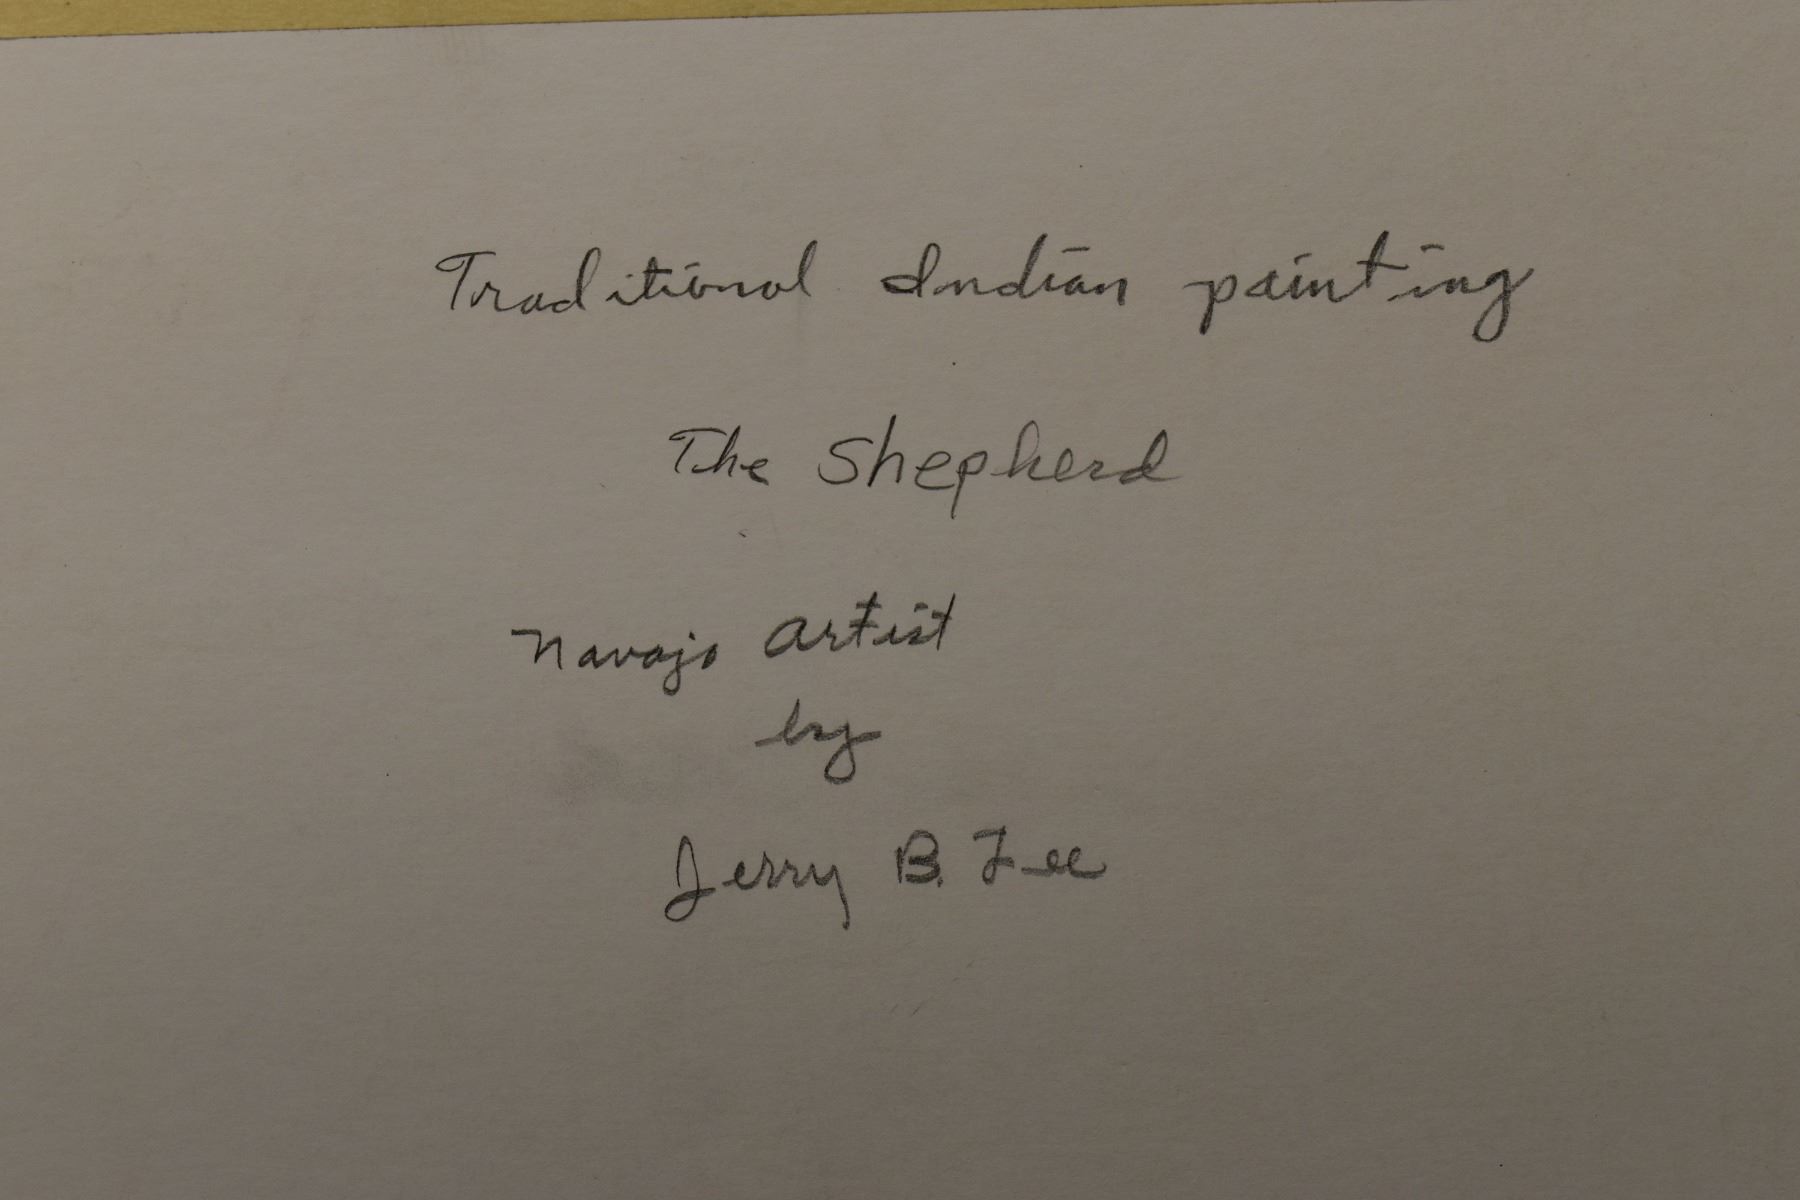 Traditional Indian painting
The Shepherd
Navajo Artist
by
Jerry B. Lee